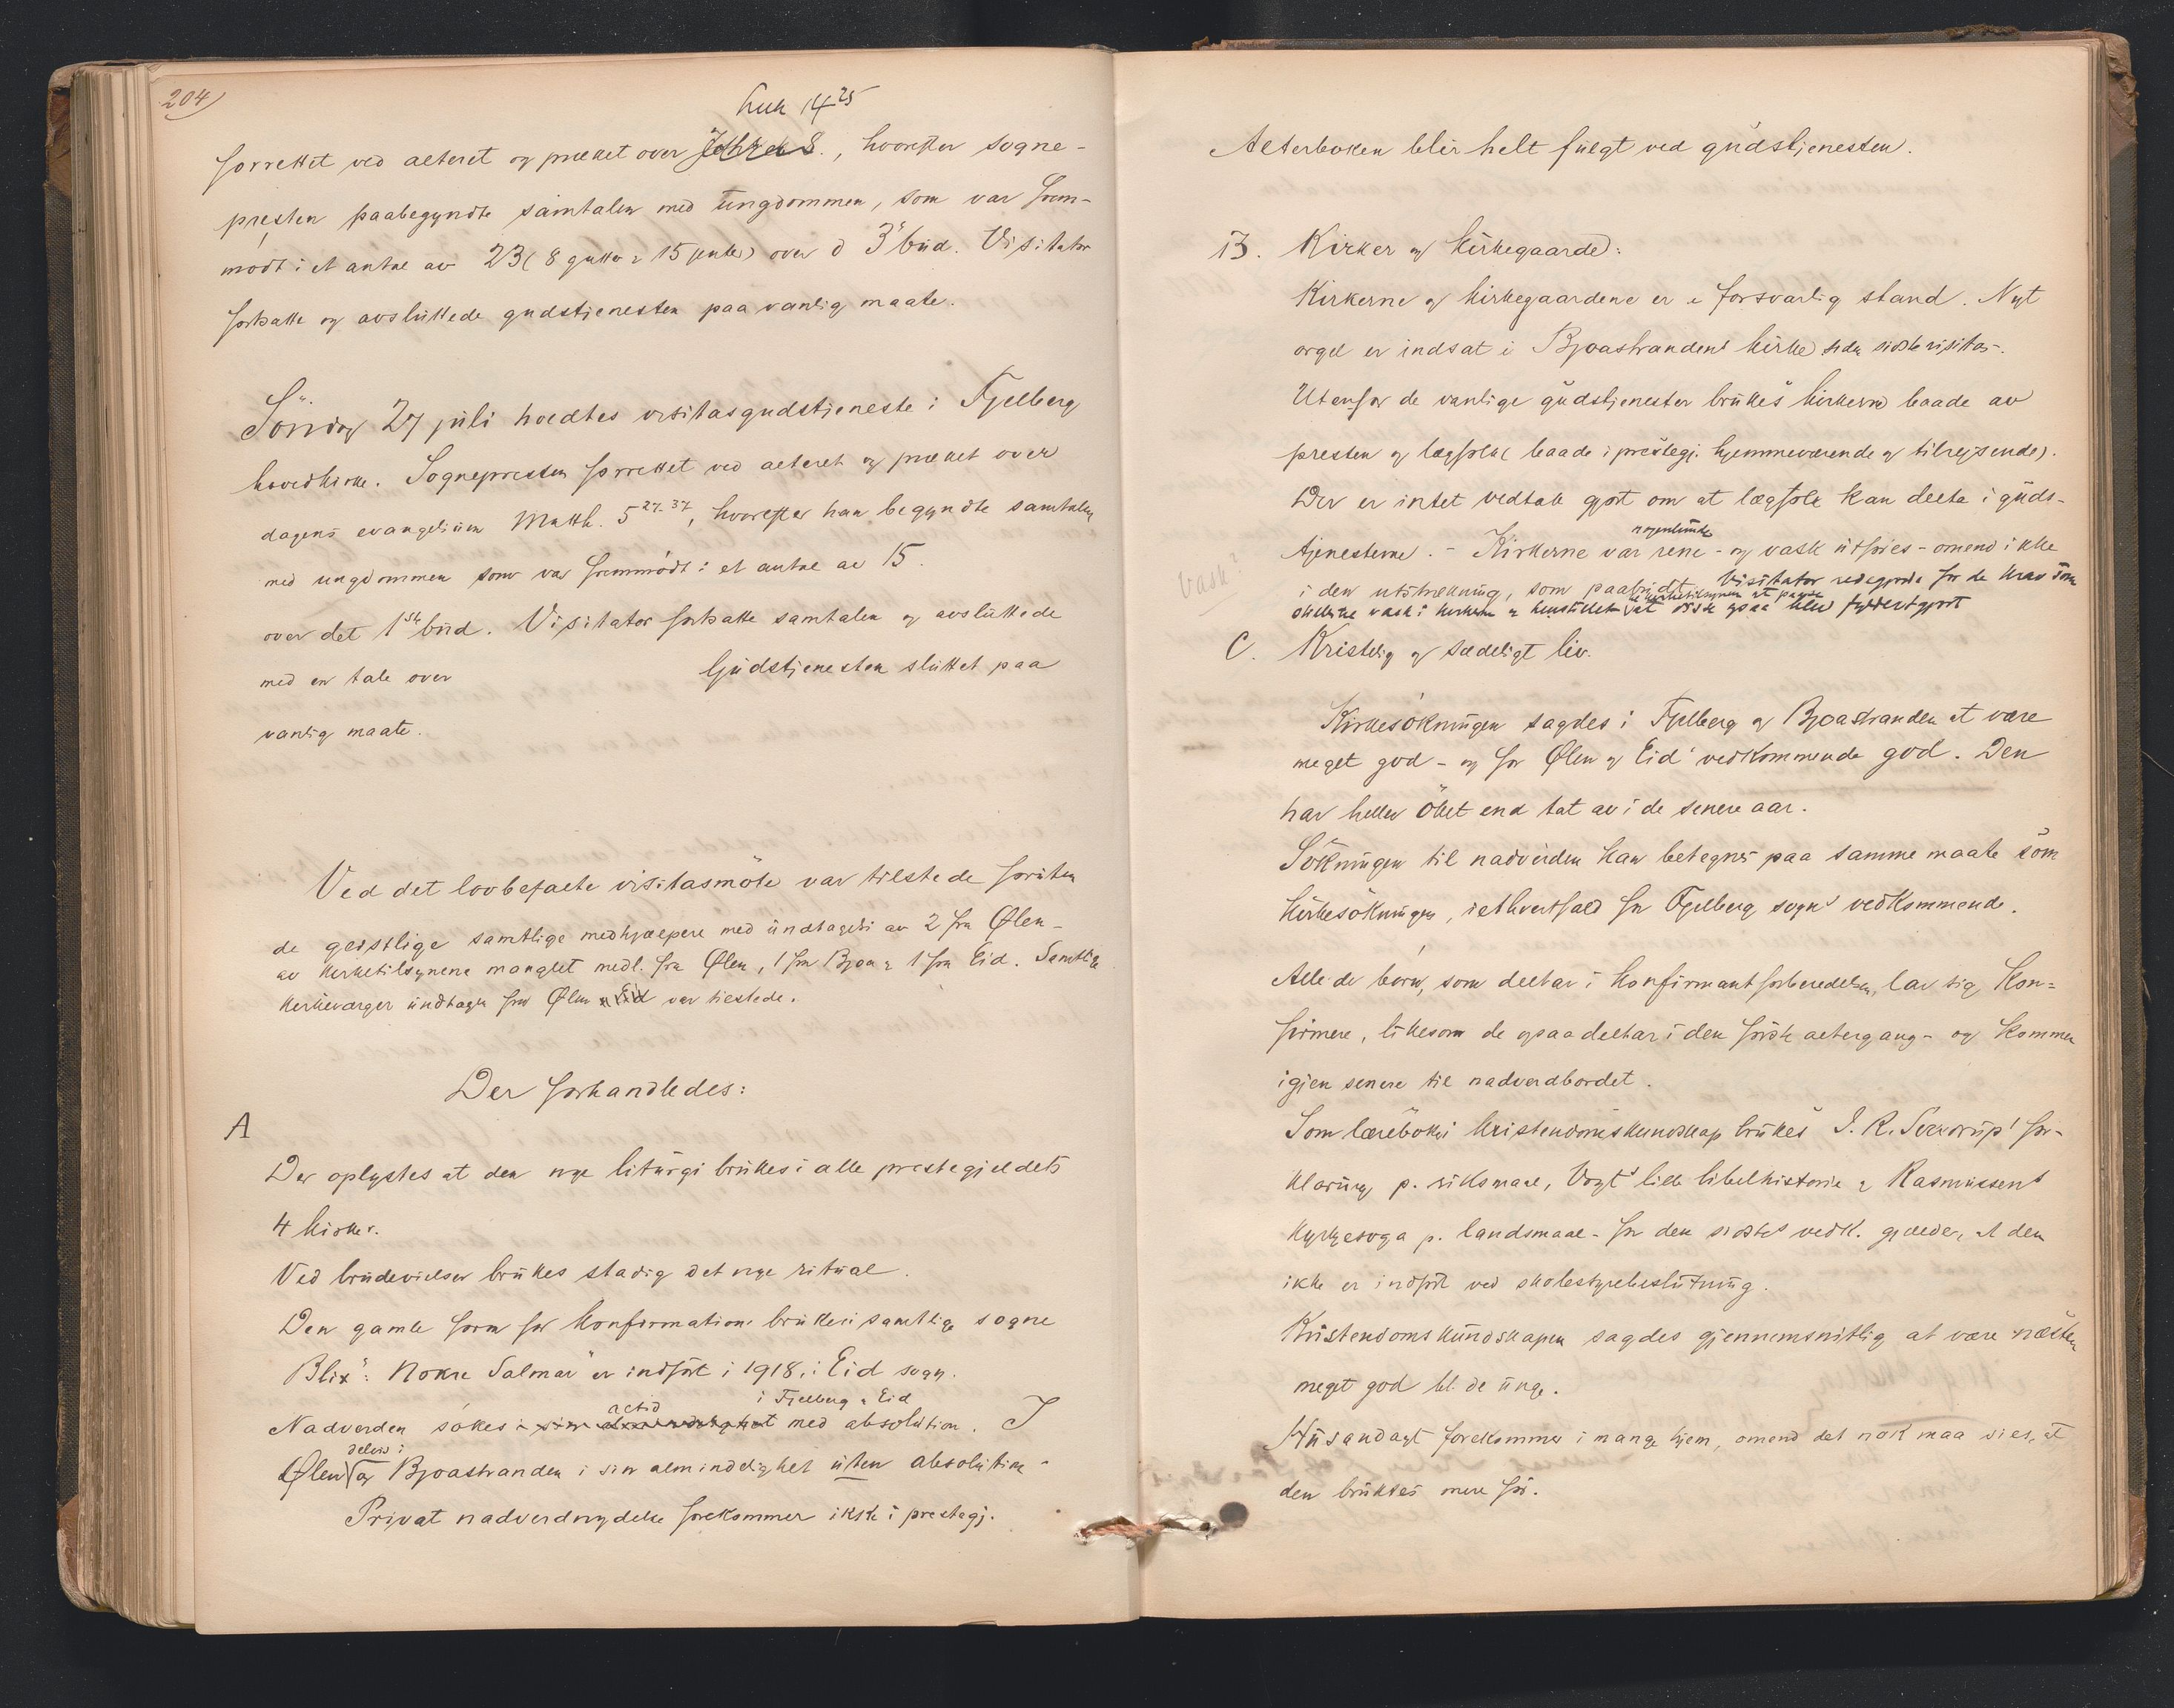 204
Luk 14 25
forrettet ved alteret og præket over , hvorefter sogne-
presten paabegyndte samtalen med ungdommen, som var frem-
mødt i et antal av 23 (8 gutter & 15 jenter) over d 3' bud. Visitator
fortsatte og avsluttede gudstjenesten paa vanlig maate.
Söndag 27 juli holdtes visitasgudstjeneste i Fjelberg
hovedkirke. Sognepresten forrettet ved alteret og præket over
dagens evangelium Matth. 5 27-37, hvorefter han begyndte samtalen
med ungdommen som var fremmödt i et antal av 15
over det 1ste bud. Visitator fortsatte samtalen og avsluttede
med en tale over Gudstjenesten sluttet paa
vanlig maate.
Ved det lovbefalte visitasmöte var tilstede foruten
de geistlige samtlige medhjælpere med undtagelse av 2 fra Ølen -
av kirketilsynene manglet medl. fra Ølen, 1 fra Bjoa & 1 fra Eid. Samtlige
kirkeværger undtagen fra Ølen & Eid var tilstede.
Der forhandledes:
A
Der oplystes at den nye liturgi brukes i alle prestegjeldets
4 kirker.
Ved brudevielser brukes stadig det nye ritual.
Den gamle form for konfirmation brukes i samtlige sogne
Blix': Nokre Salmar er indfört i 1918, i Eid sogn.
altid i Fjelberg & Eid
Nadverden sökes i sin almindelighet med absolution. I
delvis i
Ølen og Bjoastranden i sin almindelighet uten absolution -
Privat nadverdnydelse forekommer ikke i prestegj.
Alterboken blir helt fulgt ved gudstjenesten.
B. Kirker og kirkegaarde:
Kirkerne og kirkegaardene er i forsvarlig stand. Nyt
orgel er indsat i Bjoastrandens kirke siden sidste visitas.
Utenfor de vanlige gudstjenester brukes kirkerne baade av
presten og lægfolk (baade i prestegj. hjemmeværende og tilreisende).
Der er intet vedtak gjort om at lægfolk kan delta i guds-
nogenlunde
tjenesterne. - Kirkerne var rene - og vask utföres - omend ikke
vask?
i den utstrekning, som paabudt. Visitator redegjorde for de krav som
kirketilsynene at passe
vask i kirkerne & henstillet at disse ogsaa blev fyldestgjort
C. Kristelig og sædeligt liv.
Kirkesökningen sagdes i Fjelberg og Bjoastranden at være
meget god - og for Ølen og Eid' vedkommende god. Den
har heller öket end tat av i de senere aar.
Sökningen til nadverden kan betegnes paa samme maate som
kirkesökningen, i ethvertfald for Fjelberg sogns vedkommende.
Alle de børn, som deltar i konfirmantforberedelsen, lar sig kon=
firmere, likesom de ogsaa deltar i den förste altergang - og kommer
igjen senere til nadverdbordet.
Som lærebøker i kristendomskundskap brukes J. R. Sverdrups for-
klaring p. riksmaal, Vogts lille bibelhistorie & Rasmussens
Kyrkjesoga p. landsmaal - for den sidstes vedk. gjælder, at den
ikke er indfört ved skolestyrebeslutning.
Kristendomskundskapen sagdes gjennemsnitlig at være næsten
meget god bl. de unge.
Husandagt forekommer i mange hjem, omend det nok maa sies, at
den bruktes mere för.